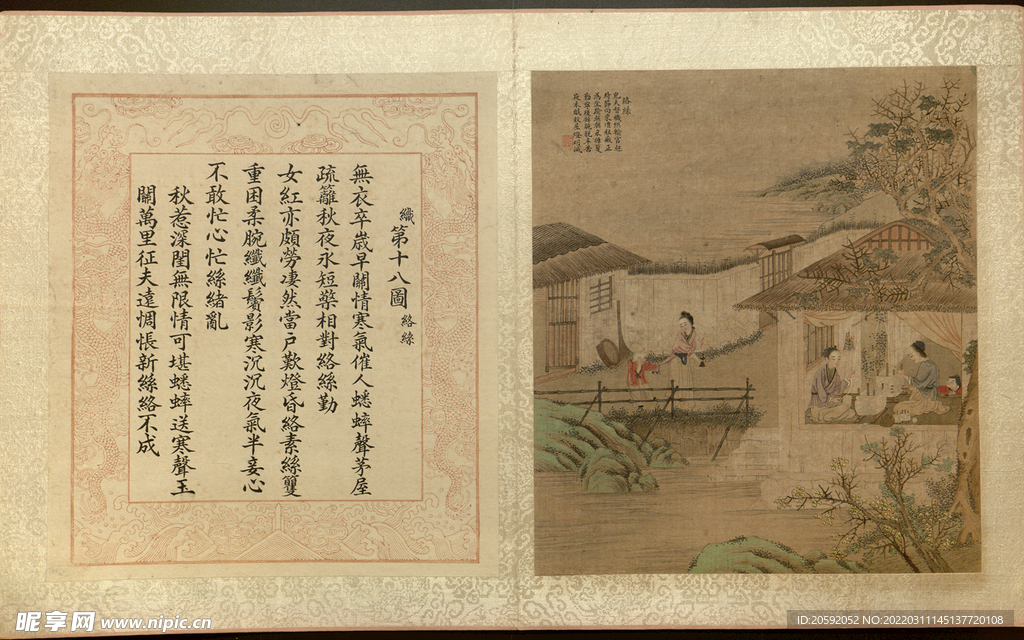 織第十八圖絡絲
無衣卒歲早關情寒氣催人蟋蟀聲茅屋
疏籬秋夜永短檠相對絡絲勤
女紅亦頗勞淒然當戶歎燈昏絡素絲雙
重困柔腕纖纖鬢影寒沉沉夜氣半妾心
不敢忙心忙絲緒亂
秋惹深閨無限情可堪蟋蟀送寒聲玉
關萬里征夫遠惆悵新絲絡不成
絡絲
昵享网 www.nipic.cn
ID:20592052 NO:20220311145137720108